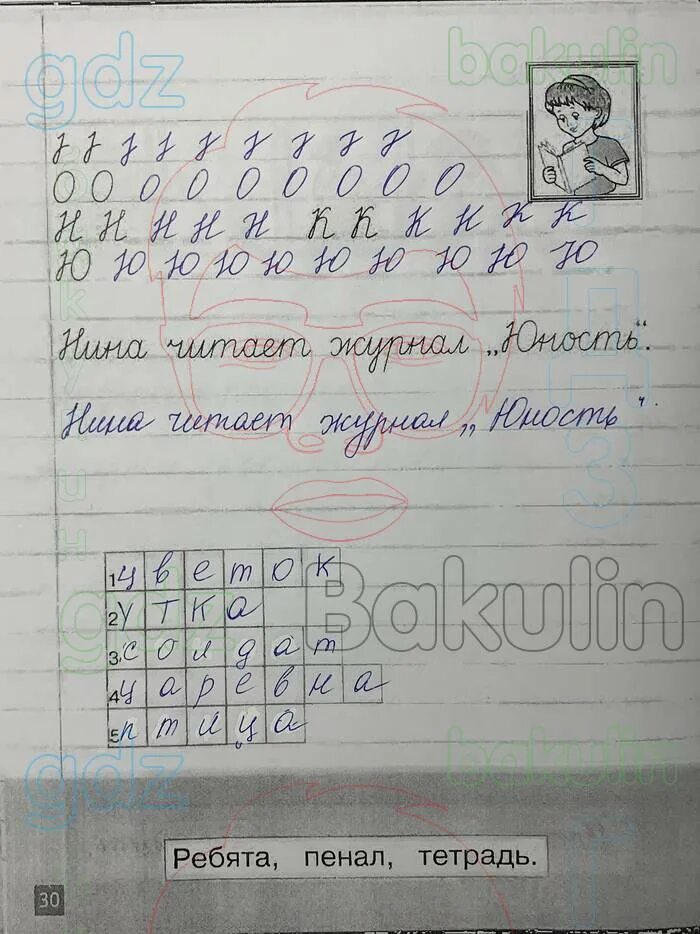 gdz
bakulin
О О О О О О О О О
Н Н Н Н Н К К К К К К
Ю Ю Ю Ю Ю Ю Ю Ю Ю Ю
Нина читает журнал „Юность“.
Нина читает журнал „Юность“.
1 цветок
gdz Bakulin
2 утка
3 солдат
4 царевна
5 птица
gdz
bakulin
Ребята, пенал, тетрадь.
30